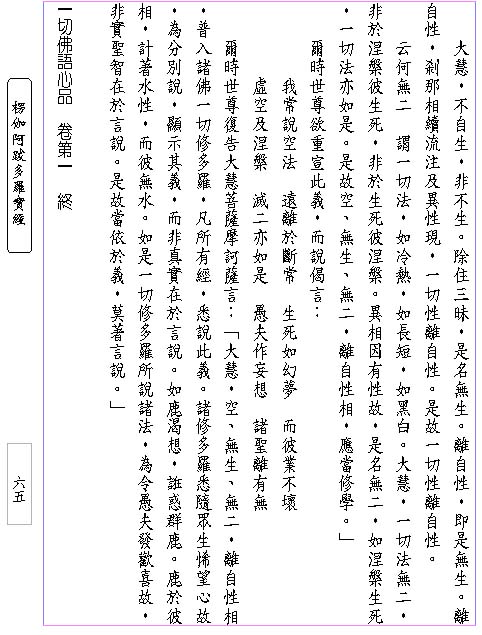 大慧，不自生，非不生。除住三昧，是名無生。離自性，即是無生。離
自性，剎那相續流注及異性現，一切性離自性。是故一切性離自性。
云何無二　謂一切法，如冷熱，如長短，如黑白。大慧，一切法無二，
非於涅槃彼生死，非於生死彼涅槃。異相因有性故，是名無二，如涅槃生死
，一切法亦如是。是故空、無生、無二，離自性相，應當修學。」
爾時世尊欲重宣此義，而說偈言：
我常說空法　遠離於斷常　生死如幻夢　而彼業不壞
虛空及涅槃　滅二亦如是　愚夫作妄想　諸聖離有無
爾時世尊復告大慧菩薩摩訶薩言：「大慧，空、無生、無二，離自性相
，普入諸佛一切修多羅，凡所有經，悉說此義。諸修多羅悉隨眾生悕望心故
，為分別說，顯示其義，而非真實在於言說。如鹿渴想，誑惑群鹿。鹿於彼
相，計著水性，而彼無水。如是一切修多羅所說諸法，為令愚夫發歡喜故，
非實聖智在於言說。是故當依於義，莫著言說。」
一切佛語心品　卷第一　終
楞伽阿跋多羅寶經
六五